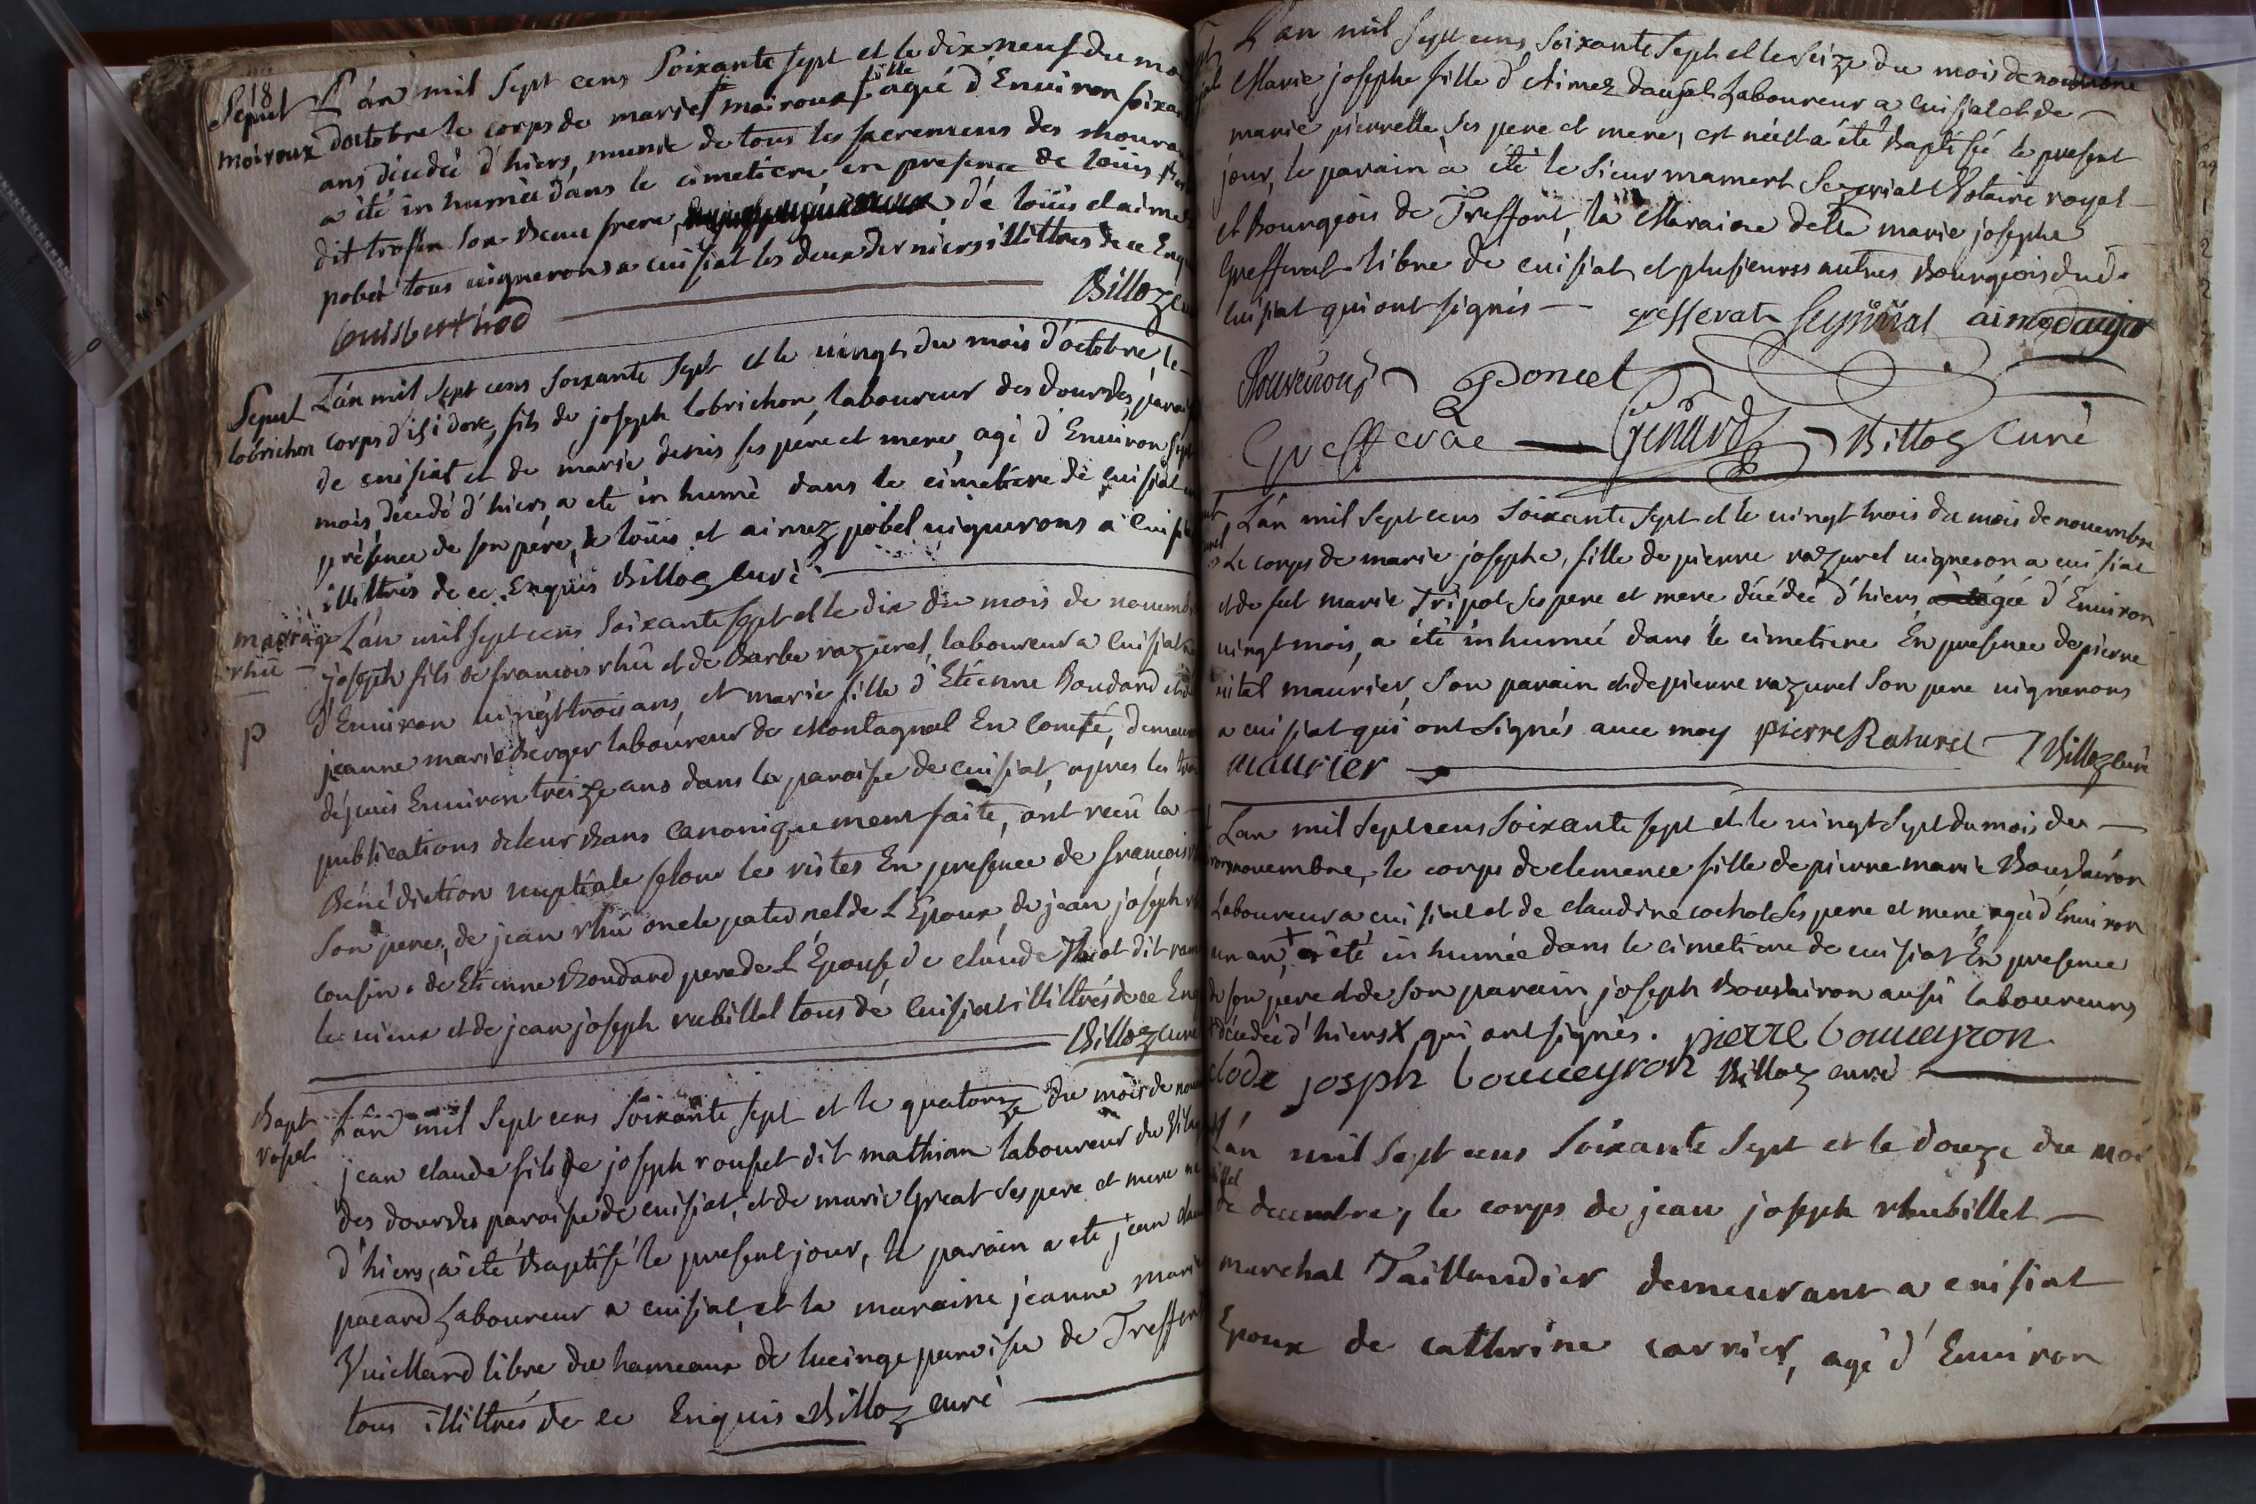 18
Sepul
moiroux
L'án mil sept cens Soixante sept et le dix neuf du mo
fille
d'octobre le corps de marie moiroux agée d'Enuiron soixan
ans décédé d'hiers, munie de tous les sacremens des mouran
a été in humée dans le cimetiere en presence de loüis
dit trossin son Beau frere, de loüis et aimez
pobel tous uignerons a cuisiat les deux derniers illittres de ce Enq
Billoz
louis berthod
Sepul
lobrichon
L'án mil sept cens soixante sept et le uingt du mois d'octobre, le
corps d'isidore, fils de joseph lobrichon, laboureur des dourdes, parois
de cuisiat et de marie denis ses pére et mere, agé d'Enuiron sept
mois, décédé d'hiers a eté in humé dans le cimetiere de cuisiat en
présence de son pére, de loüis et aimez pobel uignerons a cuisia
illittrés de ce Enquis Billoz curé
mariage
rhû
p
L'án mil sept cens Soixante sept et le dix du mois de nouemb
joseph fils de francois rhû et de Barbe razurel, laboureur a cuisiat
d'Enuiron uingt trois ans, et marie fille d'Etienne Boudard et de
jeanne marie Berger laboureur de Montagnal En Comté, demeur
dépuis Enuiron treize ans dans la paroisse de cuisiat, apres les tro
publications de leur Bans Canoniquement faite, ont recû la
Béné diction nuptiale selon les ristes En presence de françois
son pere, de jean rhû oncle paternel de L'Epoux, de jean joseph
cousin, de Etienne Boudard pere de L'Epouse de claude dit
le uieux et de jean joseph rubillet tous de Cuisiat illittrés de ce En
Billoz curé
Bapt
rosset
L'ân mil Sept cens Soixante sept et le quatorze du mois de no
jean claude fils de joseph rousset dit mathian laboureur du Vil
des dourdes paroisse de cuisiat, et de marie Great ses pere et mere
d'hiers, a été Baptisé le present jour, le parain a eté jean
pacard Laboureur a cuisiat, et la maraine jeanne mari
Vuillard libre du hameaux de lucinge paroisse de Treffor
tous illittrés de ce Enquis Billoz curé
L'an mil sept cens Soixante Sept et le seize du mois de nouembre
Marie josephe fille d'Aimez daujat Laboureur a cuisiat et de
marie pierrette ses pere et mere, est née et a été Baptisé le present
jour, le parain à été le Sieur mamert Notaire royal
et Bourgeois de Treffort, la Maraine delle marie josephe
Grefferat libre de cuisiat, et plusieurs autres Bourgeois dud.
Cuisiat qui ont signés
grefferat aimé daujat
Poncet
Grefferat Billoz Curé
L'án mil sept cens Soixante sept et le uingt trois du mois de nouembre
Le corps de marie josephe, fille de pierre razurel uigneron a cuisiat
et de fut marie Tripot ses pere et mere décédée d'hiers agée d'Enuiron
uingt mois, a été inhumée dans le cimetiere En presence de pierre
uitel maurier, son parain et de pierre razurel son pere uignerons
a cuisiat qui ont signés auec moy pierre Rasurel Billoz curé
maurier
L'an mil sept cens Soixante sept et le uingt sept du mois de
nouembre, le corps de clemence fille de pierre marie Bouvairon
Laboureur a cuisiat et de claudine cochot ses pere et mere, agée d'Enuiron
un an, a été in humée dans le cimetiere de cuisiat En presence
de son pere et de son parain, joseph Bouvairon aussi laboureurs
décédée d'hiers X qui ont signés. pierre bouveyron
clode josph bouveyron Billoz curé
L'án mil sept cens Soixante Sept et le douze du moi
de decembre, le corps de jean joseph rhubillet
marchal Taillandier demeurant a cuisiat
Epoux de catherine carrier, agé d'Enuiron